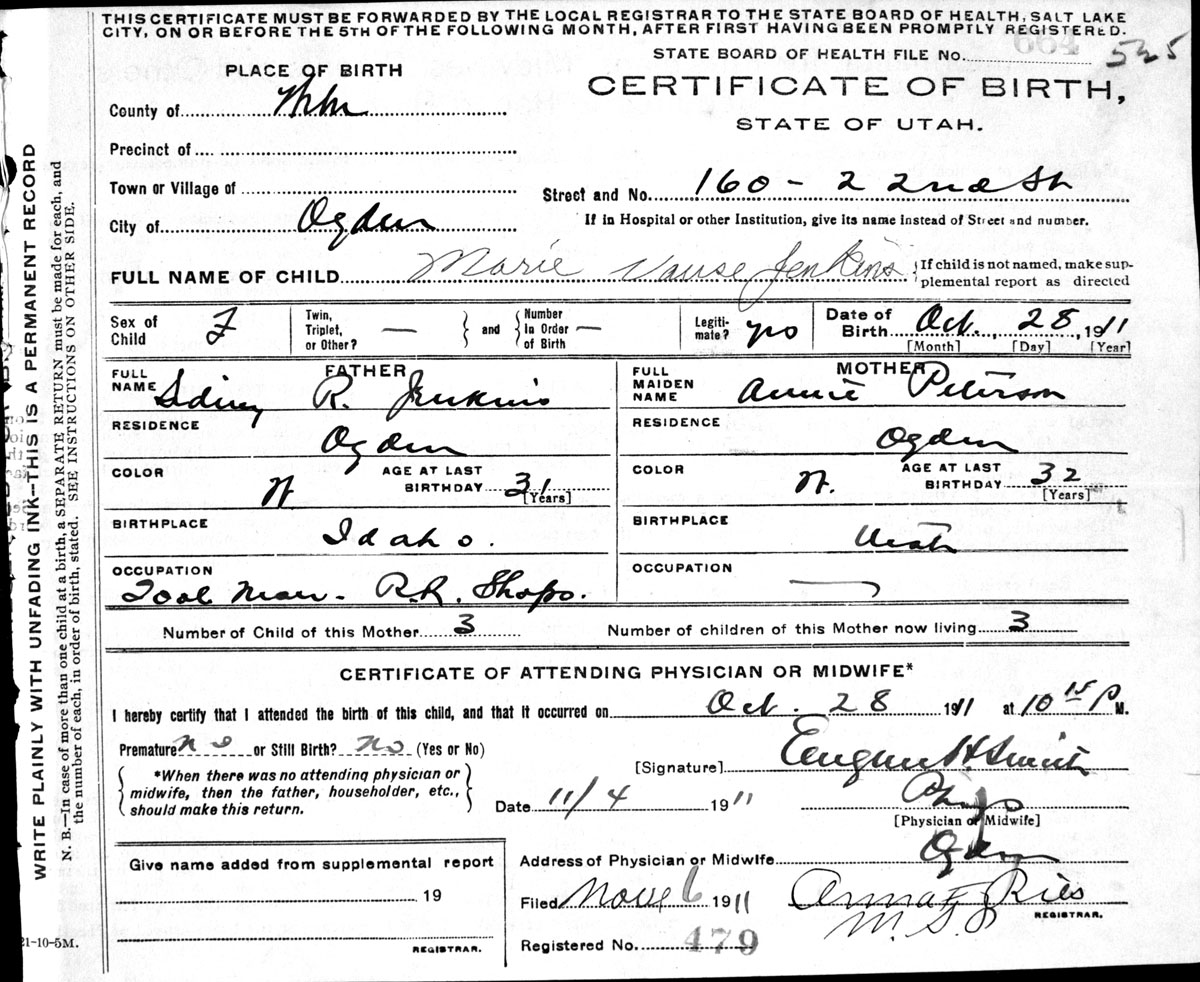 THIS CERTIFICATE MUST BE FORWARDED BY THE LOCAL REGISTRAR TO THE STATE BOARD OF HEALTH, SALT LAKE
CITY, ON OR BEFORE THE 5TH OF THE FOLLOWING MONTH, AFTER FIRST HAVING BEEN PROMPTLY REGISTERED.
664
STATE BOARD OF HEALTH FILE NO. 525
PLACE OF BIRTH
CERTIFICATE OF BIRTH,
STATE OF UTAH.
County of
Precinct of
Town or Village of
Street and No. 160 - 22nd St
City of Ogden
If in Hospital or other Institution, give its name instead of Street and number.
FULL NAME OF CHILD Marie Vause Jenkins
If child is not named, make sup-
plemental report as directed
Sex of Child F
Twin, Triplet, or Other? — and Number In Order of Birth —
Legiti-mate? yes
Date of Birth Oct., 28, 1911
[Month] [Day] [Year]
FATHER
FULL NAME Sidney R. Jenkins
MOTHER
FULL MAIDEN NAME Annie Peterson
RESIDENCE Ogden
RESIDENCE Ogden
COLOR W
AGE AT LAST BIRTHDAY 31 [Years]
COLOR W.
AGE AT LAST BIRTHDAY 32 [Years]
BIRTHPLACE Idaho.
BIRTHPLACE Utah
OCCUPATION Tool Man - R.R. Shops.
OCCUPATION —
Number of Child of this Mother 3
Number of children of this Mother now living 3
CERTIFICATE OF ATTENDING PHYSICIAN OR MIDWIFE*
I hereby certify that I attended the birth of this child, and that it occurred on Oct. 28 1911 at 10 15 P M.
Premature no or Still Birth? no (Yes or No)
*When there was no attending physician or
midwife, then the father, householder, etc.,
should make this return.
[Signature] Eugene H. Smith
Date 11/4 1911
Phys
[Physician or Midwife]
Give name added from supplemental report
19
REGISTRAR.
Address of Physician or Midwife Ogden
Filed Nov 6 1911
Anna F Ries
REGISTRAR.
Registered No. 479
WRITE PLAINLY WITH UNFADING INK—THIS IS A PERMANENT RECORD
N. B.—In case of more than one child at a birth, a SEPARATE RETURN must be made for each, and
the number of each, in order of birth, stated. SEE INSTRUCTIONS ON OTHER SIDE.
21-10-5M.